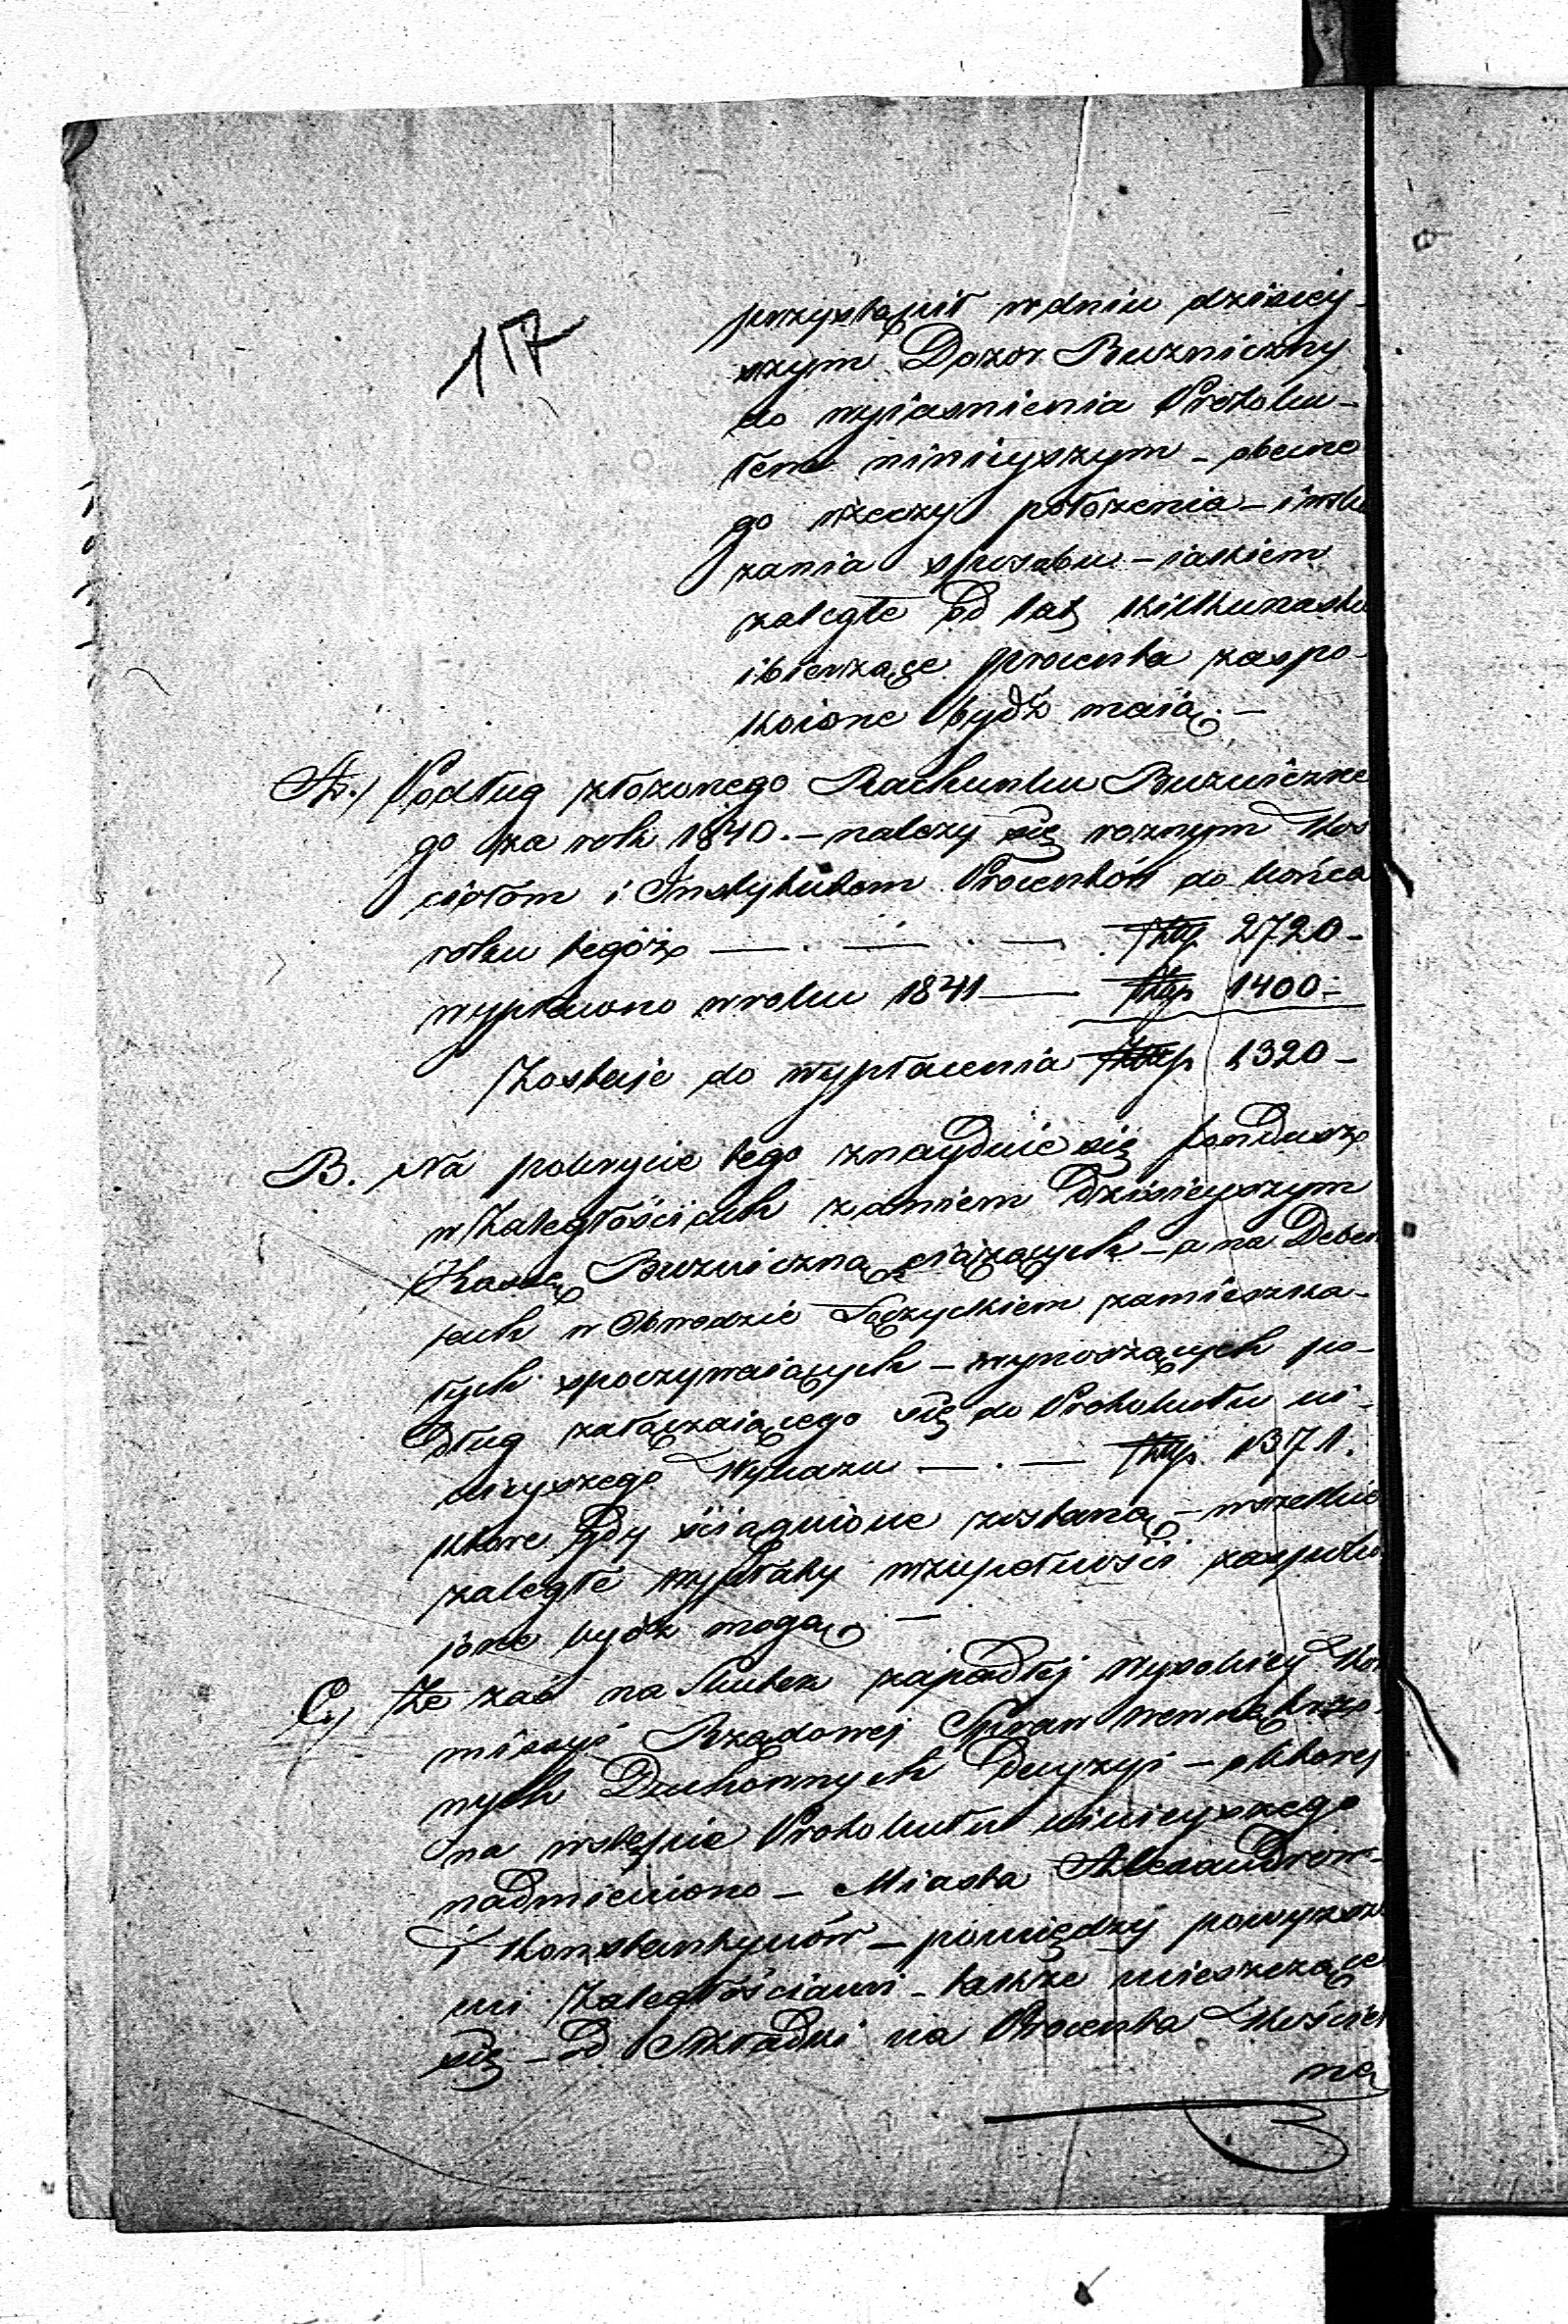 117
przystąpił w dniu dzisiey-
szym Dozor Bużniczny
do wyiasnienia Protoku-
łem ninieyszym – obecne
go rzeczy położenia – i wska
zania sposobu – iakiem
zaległe od lat kilkunastu
i bierzące procenta zaspo-
koione bydź maią. –
A./ Podług złożonego Rachunku Bużniczne
go za rok 1840. – nalezy się roznym Kos
ciołom i Instytutom Procentów do końca
roku tegoż — . — . — złtp 2720 –
wypłacono w roku 1841 — złtp 1400 –
Zostaje do wypłacenia złtp 1320 –
B. Na pokrycie tego znayduie się fundusz
w Zaległościach z dniem Dzisieyszym
Kassę Bużniczną ciążących – a na Deben
tach w Obwodzie Łęczyckiem zamieszka-
łych spoczywaiących – wynoszących po-
dług załączaiącego się do Protokułu ni-
nieyszego Wykazu — . — złtp. 1371.
ktore gdy ściągnione zostaną – wszelkie
zaległe wypłaty w zupełności zaspoko
ione bydź mogą. –
C./ Że zaś na Skutek zapadłej Wysokiey Kom
missyi Rządowej Spraw Wewnętrz-
nych Duchownych Decyzyi – o ktorej
na wstępie Protokułu ninieyszego
nadmieniono – Miasta Alexandrow-
i Konstantynów – pomiędzy powyższe
mi Zaległościami – także mieszczące
się – od Składki na Procenta Kościel
ne